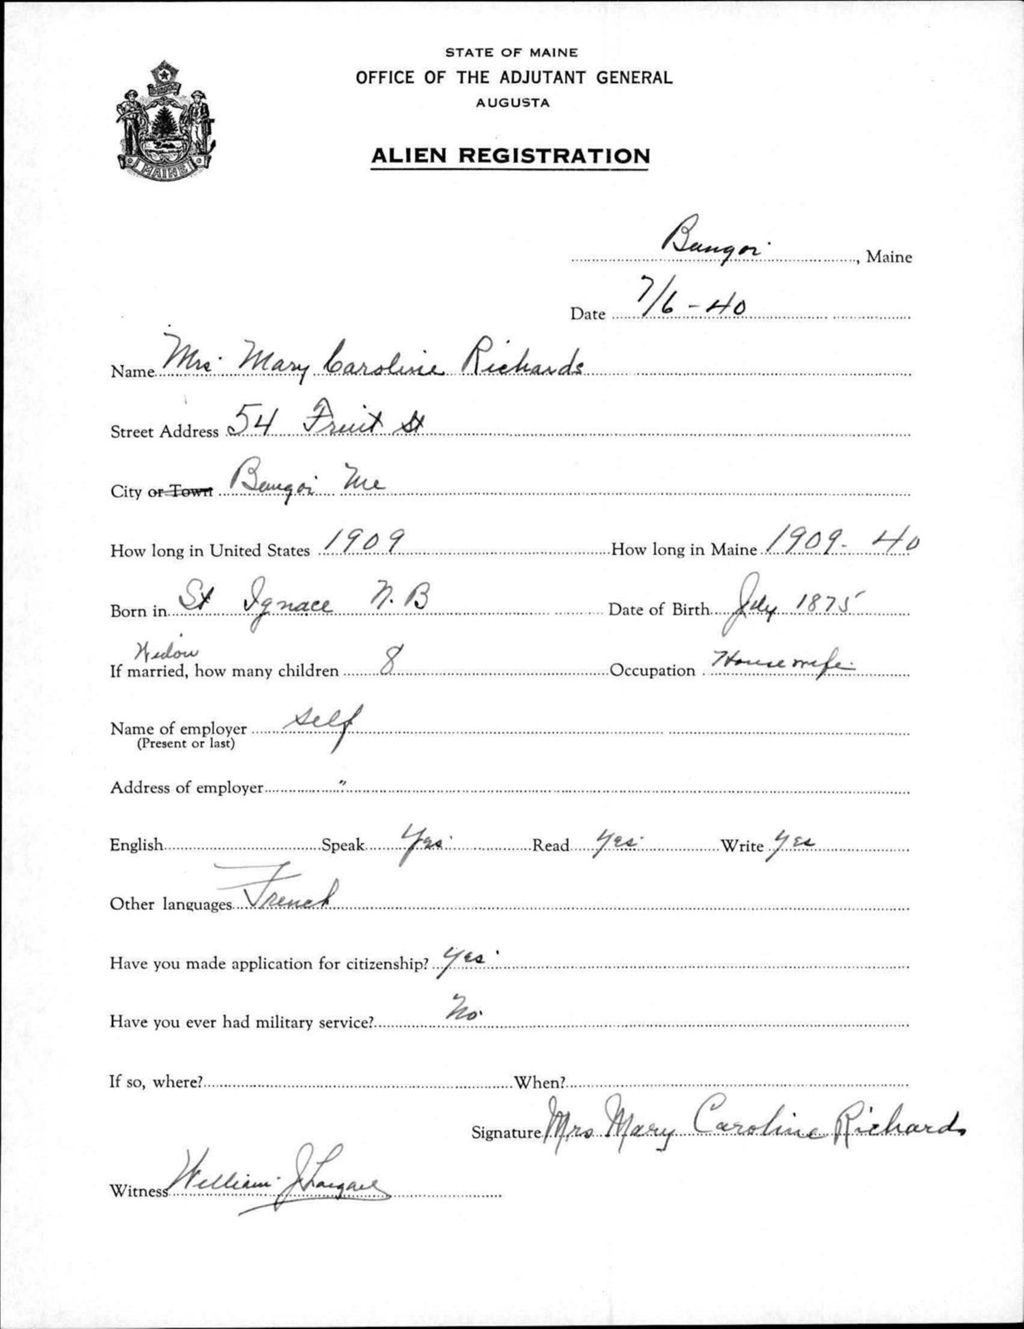 STATE OF MAINE
OFFICE OF THE ADJUTANT GENERAL
AUGUSTA
ALIEN REGISTRATION
MAINE
Bangor, Maine
Date 7/6-40
Name Mrs. Mary Caroline Richards
Street Address 54 Fruit St
City or Town Bangor Me
How long in United States 1909 How long in Maine 1909-40
Born in St Ignace N.B Date of Birth July 1875
Widow
If married, how many children 8 Occupation Housewife
Name of employer self
(Present or last)
Address of employer "
English Speak Yes Read Yes Write Yes
Other languages French
Have you made application for citizenship? Yes
Have you ever had military service? No
If so, where? When?
Signature Mrs Mary Caroline Richards
Witness William J